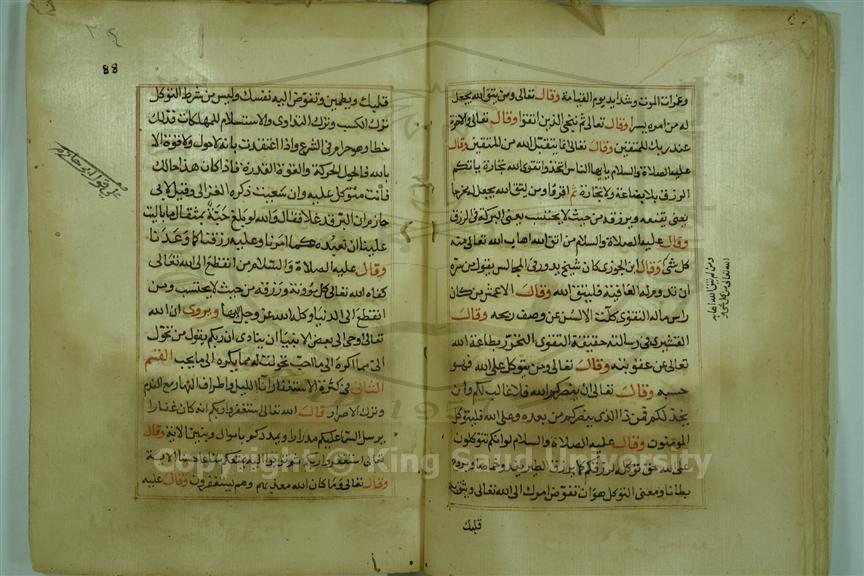 وغمرات الموت وشدايد يوم القيامة وقال تعالى ومن يتق الله يجعل
له من امره يسرا وقال تعالى ثم ننجي الذين اتقوا وقال تعالى والاخرة
عند ربك للمتقين وقال تعالى انما يتقبل الله من المتقين وقال
عليه الصلاة والسلام يا يها الناس اتخذوا تقوى الله تجارة ياتكم
الرزق بلا بضاعة ولا تجارة ثم اقرؤا ومن يتق الله يجعل له مخرجا
يعني يقنعه ويرزقه من حيث لا يحتسب يعني البركة في الرزق
وقال عليه الصلاة والسلام من اتق الله اهاب الله تعالى منه
كل شيء وقال ابن الجوزي كان شيخ يدور في المجالس يقول من سره
ان تدوم له العافية فليتق الله وقال الاعمش من كان
راس ماله التقوى كلت الالسن عن وصف ربحه وقال
القشيري في رسالته حقيقة التقوى التحرز بطاعة الله
تعالى عن عقوبته وقال تعالى ومن يتوكل على الله فهو
حسبه وقال تعالى ان ينصركم الله فلا غالب لكم وان
يخذلكم فمن ذا الذي ينصركم من بعده وعلى الله فليتوكل
المومنون وقال عليه الصلاة والسلام لو انكم تتوكلون
على الله حق توكله لرزقكم كما يرزق الطير تغدوا خماصا وتروح
بطانا ومعنى التوكل هو ان تفوض امرك الى الله تعالى ويثق به
قلبك
ومن لم يتق الله اهابه
الله تعالى من كل شيء
88
قلبك ويطمئن وتفوض اليه نفسك وليس من شرط التوكل
ترك الكسب وترك التداوى والاستسلام للمهلكات فذلك
خطا وهو حرام في الشرع واذا اعتقدت بانه لا حول ولا قوة الا
بالله فالحول الحركة والقوة القدرة فاذا كان هذا حالك
فانت متوكل عليه وان سعيت ذكره الغزالي وقيل لابي
حازم ان البر قد غلا فقال والله لو بلغ حبة بمثقال ما باليت
علينا ان نعبده كما امرنا وعليه رزقنا كما وعدنا
وقال عليه الصلاة والسلام من انقطع الى الله تعالى
كفاه الله تعالى كل مؤونة ورزقه من حيث لا يحتسب ومن
انقطع الى الدنيا وكله الله عز وجل اليها ويروى ان الله
تعالى اوحى الى بعض الانبيا ان ينادى ان ربكم يقول من تحول
الى مما اكره الى ما احب تحولت له مما يكره الى ما يحب القسم
الثاني في كثرة الاستغفار آنا الليل واطراف النهار مع الندم
وترك الاصرار قال الله تعالى استغفروا ربكم انه كان غفارا
يرسل السما عليكم مدرارا ويمددكم باموال وبنين الاية وقال
تعالى استغفروا ربكم ثم توبوا اليه يمتعكم متاعا حسنا الاية
وقال تعالى وما كان الله معذبهم وهم يستغفرون وقال عليه
Copyright © King Saud University
1957